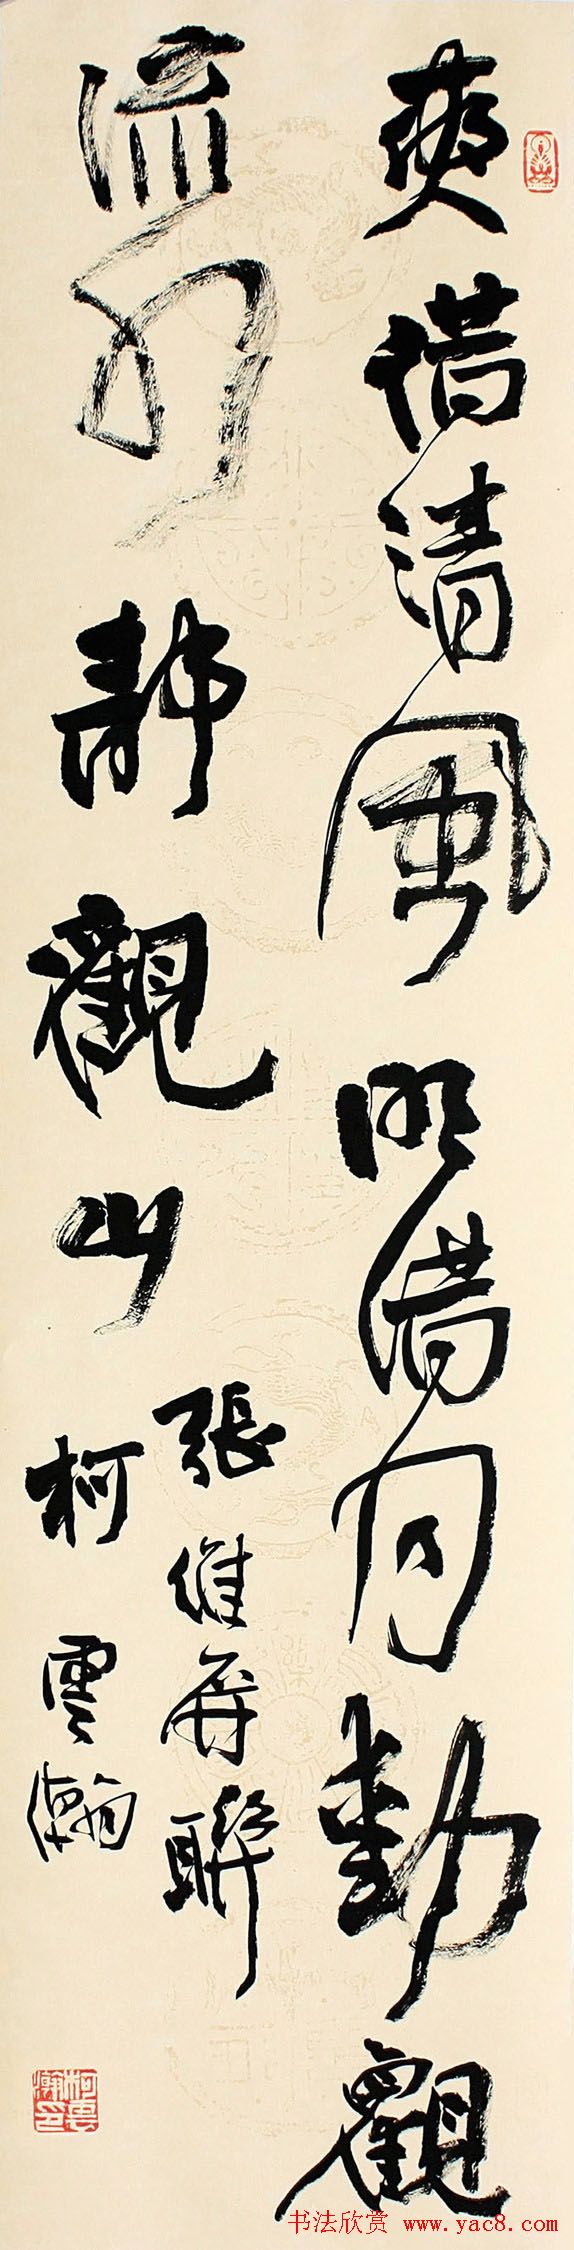 爽借清風明借月動觀
流水靜觀山
張維屏聯
柯雲瀚
柯雲瀚印
书法欣赏 www.yac8.com